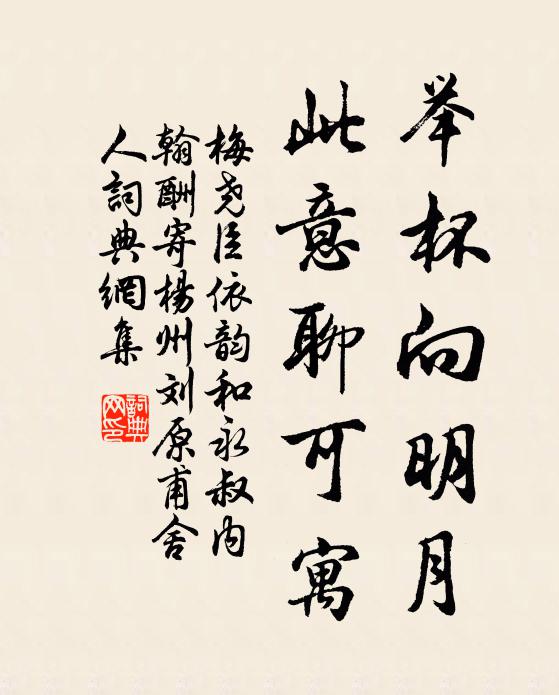 举杯向明月
此意聊可寓
梅尧臣依韵和永叔内
翰酬寄楊州刘原甫舍
人詞典網集
詞典
网印